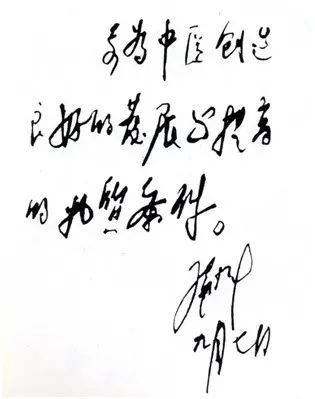 要为中医创造
良好的發展与提高
的物質条件。
九月七日